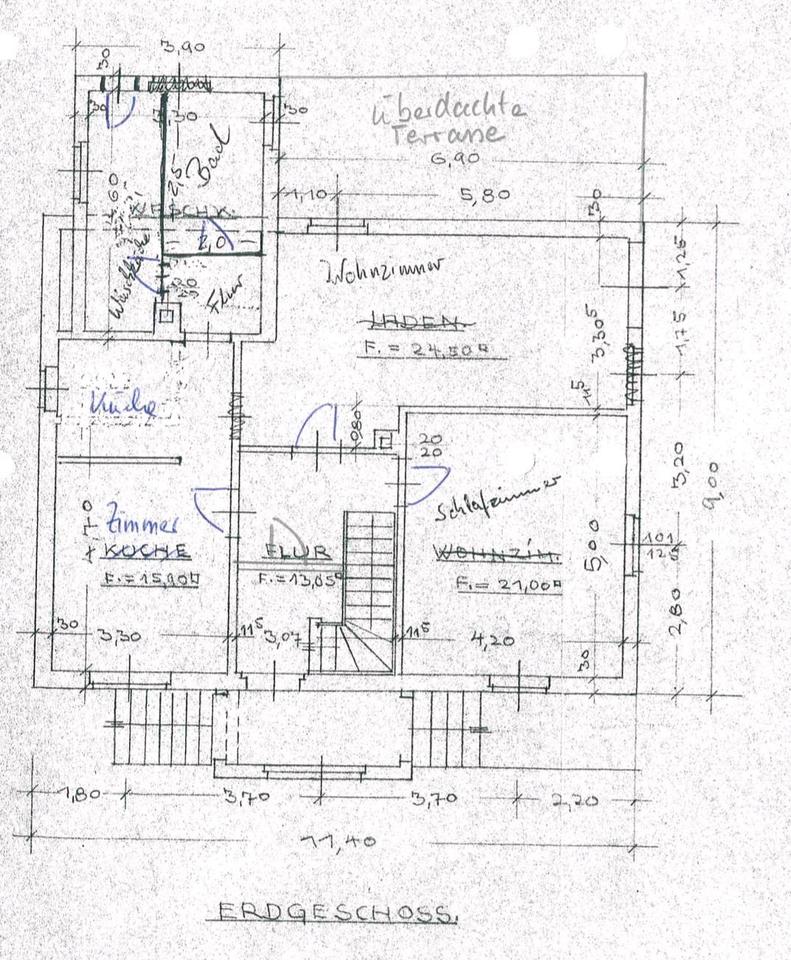 3,90
30
30
30
30
überdachte
Terrasse
6,90
Bad
2,5
4,60
WASCHK.
2,0
1,10
5,80
30
Waschküche
Flur
Wohnzimmer
LADEN
F. = 24,50
3,305
11⁵
1,25
1,75
Küche
80
20
20
Schlafzimmer
3,20
9,00
Zimmer
KÜCHE
F. = 15,90
4,70
FLUR
F. = 13,05
WOHNZIM.
F. = 21,00
5,00
101
2,80
30
3,30
11⁵
3,07
11⁵
4,20
30
1,80
3,70
3,70
2,20
11,40
ERDGESCHOSS.